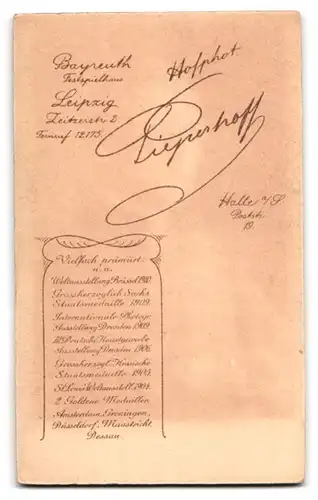 Bayreuth
Festspielhaus
Leipzig
Zeitzerstr. 2
Fernruf 12175.
Hofphot
Pieperhoff
Halle a/S.
Poststr.
19.
Vielfach prämiirt:
u. a.
Weltausstellung Brüssel 1910.
Grossherzoglich Sächs.
Staatsmedaille 1909.
Internationale Photogr.
Ausstellung Dresden 1909.
III Deutsche Kunstgewerbe
Ausstellung Dresden 1906.
Grossherzogl. Hessische
Staatsmedaille 1905.
St. Louis Weltausstell. 1904.
2 Goldene Medaillen
Amsterdam, Groningen,
Düsseldorf, Maastricht,
Dessau.